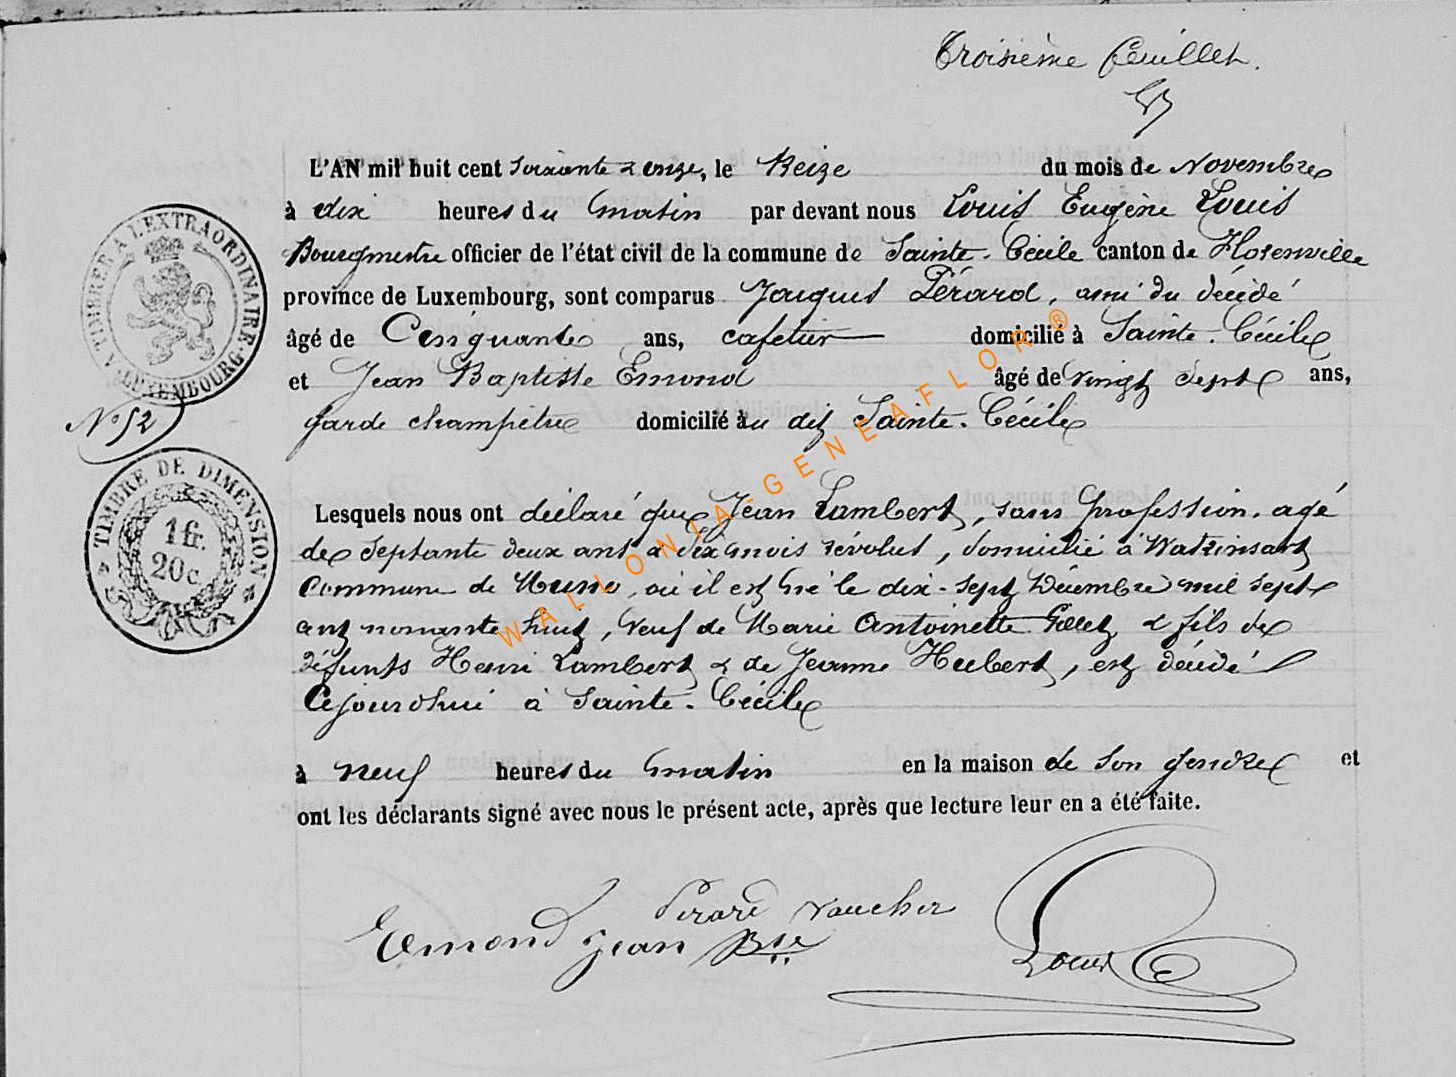 Troisième feuillet.
L'AN mil huit cent soixante & onze, le Seize du mois de Novembre
à dix heures du matin par devant nous Louis Eugène Louis
Bourgmestre officier de l'état civil de la commune de Sainte-Cécile canton de Florenville
province de Luxembourg, sont comparus Jacques Pérard, ami du décédé
âgé de Cinquante ans, cafetier domicilié à Sainte-Cécile
et Jean Baptiste Emond âgé de vingt sept ans,
garde champêtre domicilié au dit Sainte-Cécile
Lesquels nous ont déclaré que Jean Lambert, sans profession, agé
de septante deux ans & dix mois révolus, domicilié à Watrinsart
Commune de Muno, où il est né le dix-sept Décembre mil sept
cent nonante huit, veuf de Marie Antoinette & fils de
défunts Henri Lambert & de Jeanne Hubert, est décédé
Cejourdhui à Sainte-Cécile
à neuf heures du matin en la maison de son gendre et
ont les déclarants signé avec nous le présent acte, après que lecture leur en a été faite.
A TIMBRER A L'EXTRAORDINAIRE
LUXEMBOURG
N° 52
TIMBRE DE DIMENSION
1 fr.
20 c.
WALLONIA-GENEAFLOR®
Perard Vaucher
Emond Jean Bte
Louis